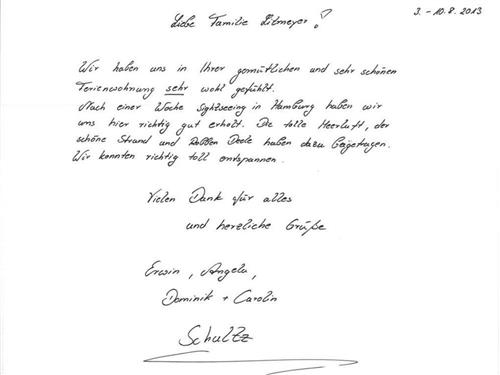 3. - 10.8.2013
Liebe Familie Litmeyer!
Wir haben uns in Ihrer gemütlichen und sehr schönen
Ferienwohnung sehr wohl gefühlt.
Nach einer Woche Sightseeing in Hamburg haben wir
uns hier richtig gut erholt. Die tolle Meerluft, der
schöne Strand und Robben Deele haben dazu beigetragen.
Wir konnten richtig toll entspannen.
Vielen Dank für alles
und herzliche Grüße
Erwin, Angela,
Dominik + Carolin
Schultz